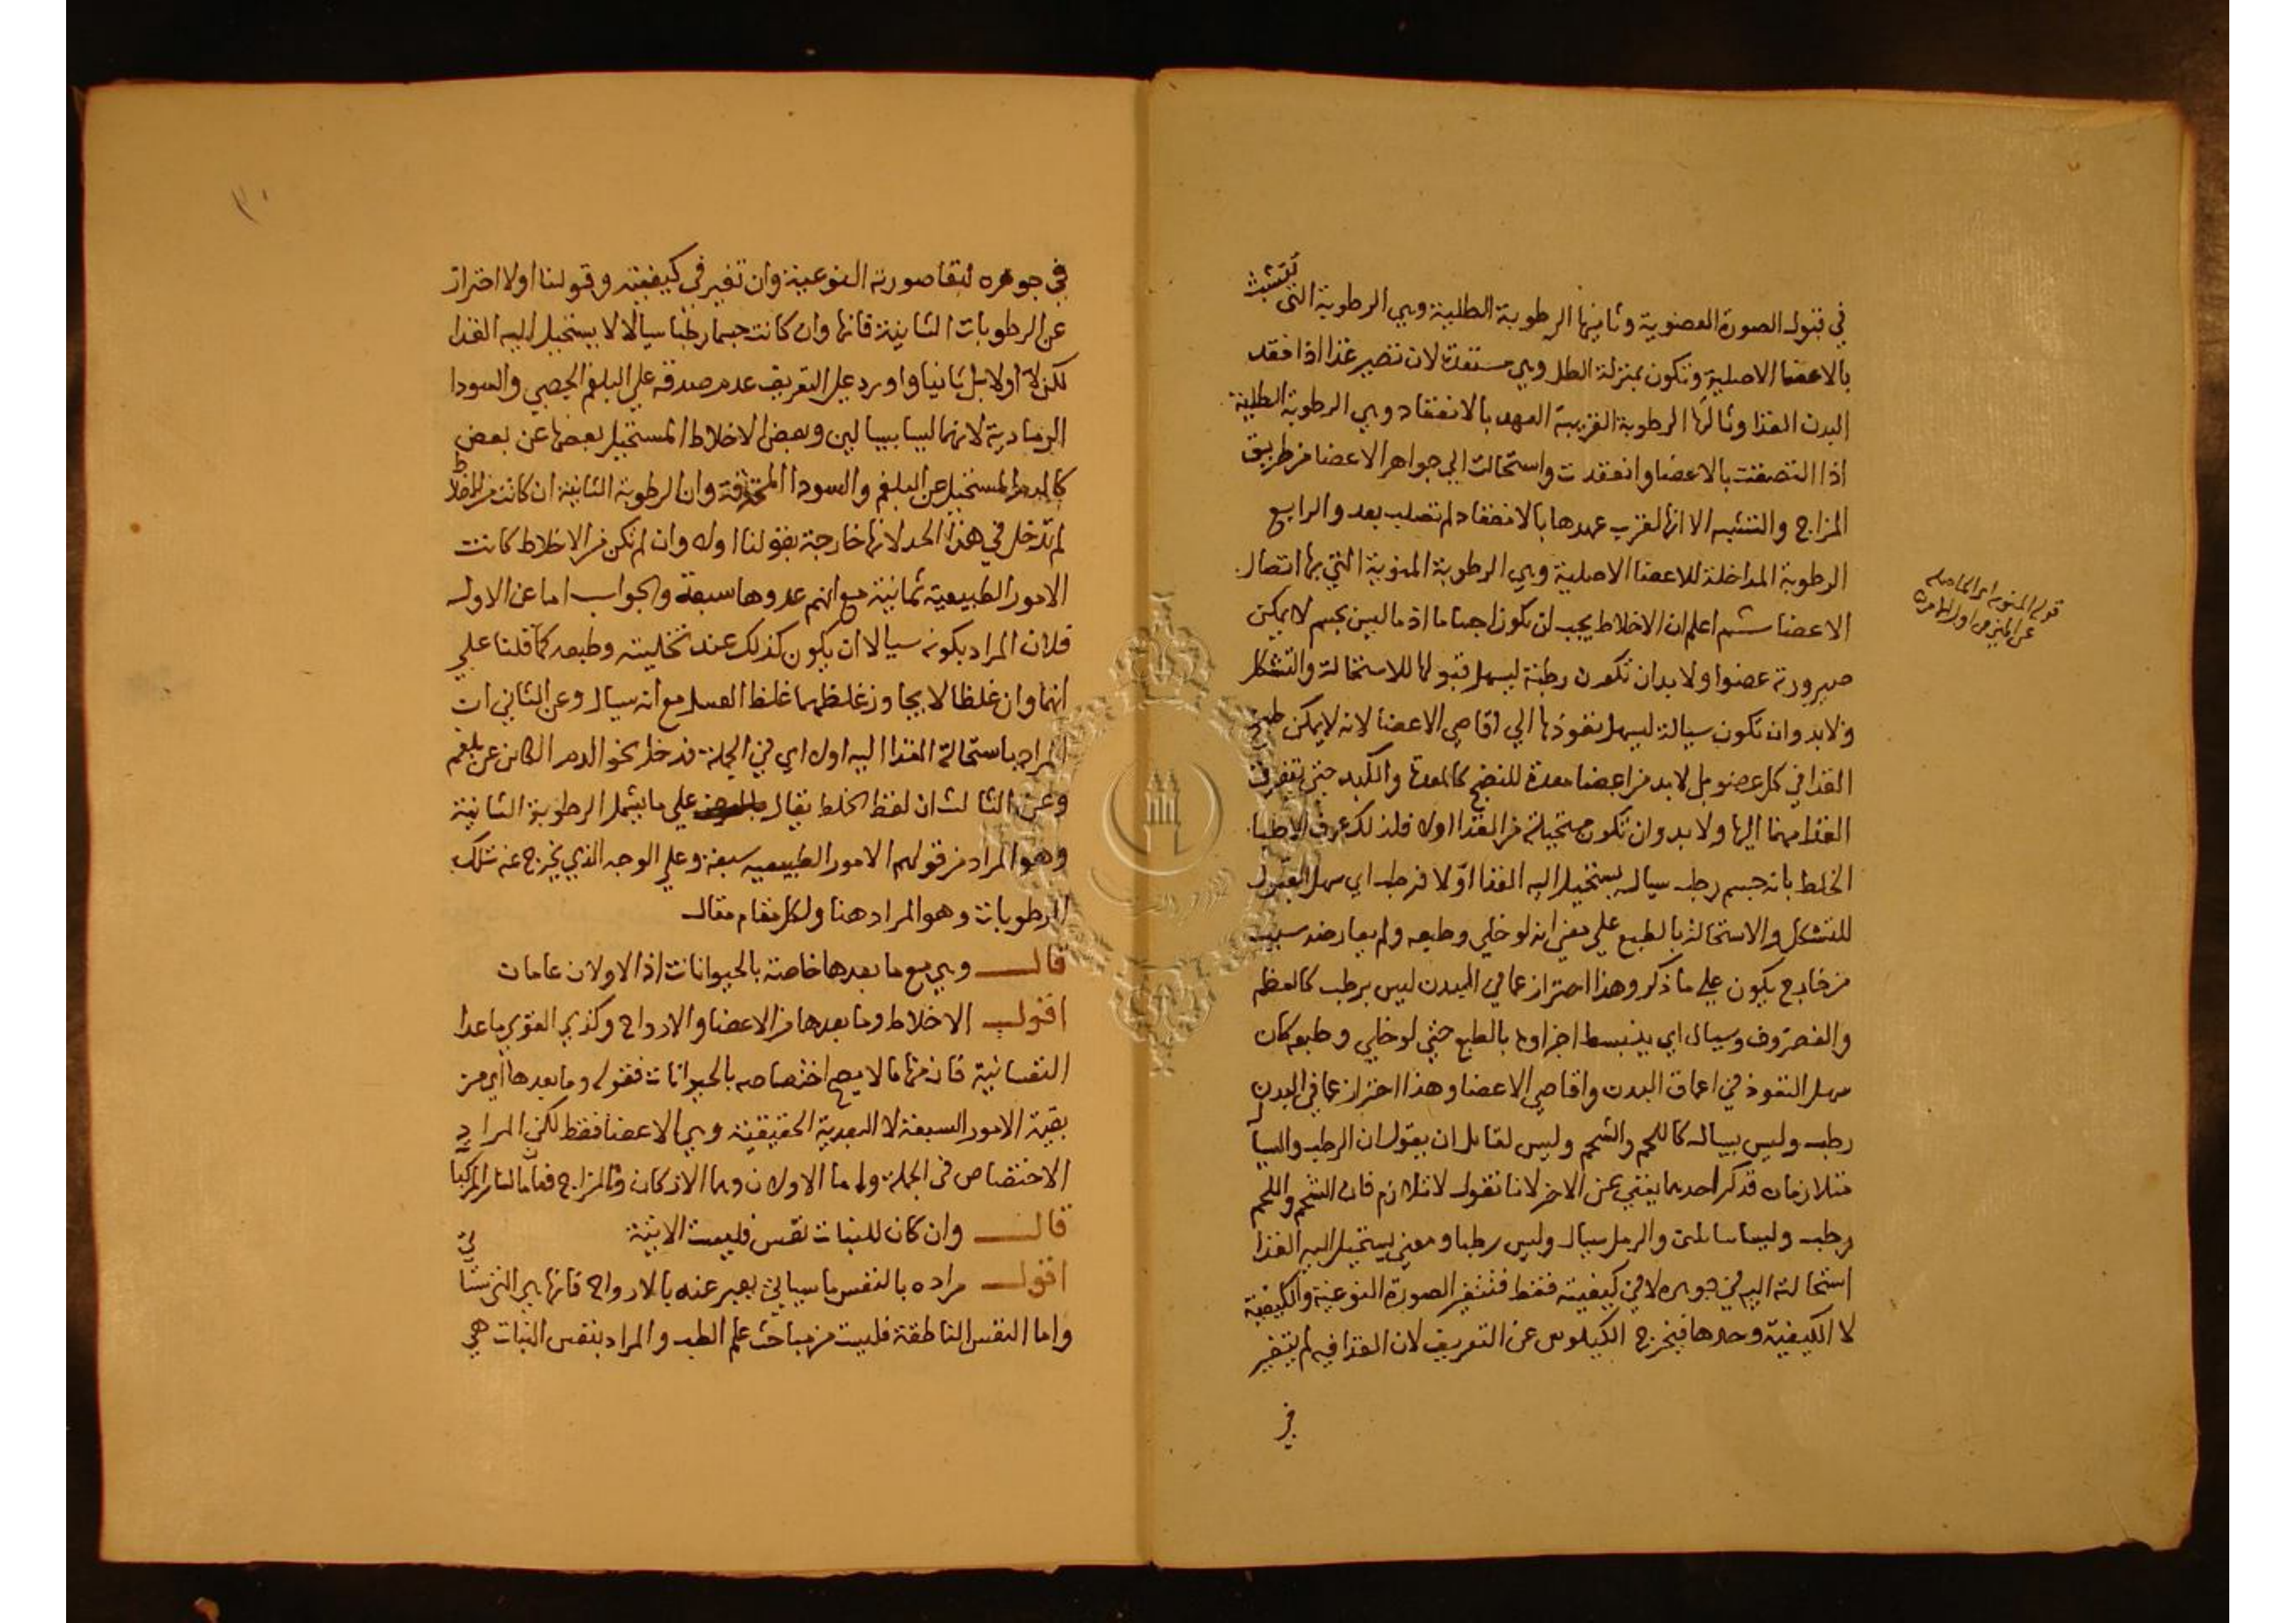 في قبول الصورة العضوية وثانيها الرطوبة الطلية وهي الرطوبة التي تتشبث
بالاعضا الاصلية وتكون بمنزلة الطل وهي مستعدة لان تصير غذا اذا فقد
البدن الغذا وثالثها الرطوبة القريبة العهد بالانعقاد وهي الرطوبة الطلية
اذا التصقت بالاعضا وانعقدت واستحالت الي جواهر الاعضا من طريق
المزاج والتشبه الا انها لقرب عهدها بالانعقاد لم تصلب بعد والرابع
الرطوبة المداخلة للاعضا الاصلية وهي الرطوبة المنوية التي بها اتصال
الاعضا ثم اعلم ان الاخلاط يجب ان تكون اجساما اذ ما ليس بجسم لا يمكن
صيرورته عضوا ولا بد ان تكون رطبة ليسهل قبولها للاستحالة والتشكل
ولا بد وان تكون سيالة ليسهل نفوذها الي اقاصي الاعضا لانه لا يمكن طبخ
الغذا في كل عضو بل لا بد من اعضا معدة للنضج كالمعدة والكبد حتي يتفرق
الغذا منهما اليها ولا بد وان تكون مستحيلة من الغذا اولا فلذلك عرف الاطبا
الخلط بانه جسم رطب سيال يستحيل اليه الغذا اوّلا فرطب اي سهل القبول
للتشكل والاستحالة بالطبع علي معني انه لو خلي وطبعه ولم يعارضه سبب
من خارج يكون علي ما ذكر وهذا احتراز عما في البدن ليس برطب كالعظم
والغضروف وسيال اي ينبسط اجزاوه بالطبع حتي لو خلي وطبعه كان
سهل النفوذ في اعماق البدن واقاصي الاعضا وهذا احتراز عما في البدن
رطب وليس بسيال كاللحم والشحم وليس لقائل ان يقول ان الرطب والسيال
متلازمان فذكر احدهما يغني عن الاخر لانا نقول لا تلازم فان الشحم واللحم
رطب وليسا سائلين والرمل سيال وليس رطبا ومعني يستحيل اليه الغذا
استحالته اليه في جوهره لا في كيفيته فقط فتتغير الصورة النوعية والكيفية
لا الكيفية وحدها فيخرج الكيلوس عن التعريف لان الغذا فيه لم يتغير
في
قوله المنوية اي الحاصلة
عن المني من اول
في جوهره لبقا صورته النوعية وان تغير في كيفيته وقولنا اولا احتراز
عن الرطوبات الثانية فانها وان كانت جسما رطبا سيالا لا يستحيل اليه الغذا
لكن لا اولا بل ثانيا واورد علي التعريف عدم صدقه علي البلغم الجصي والسودا
الرمادية لانهما ليسا بسيالين وبعض الاخلاط المستحيل بعضها عن بعض
كالدم المستحيل عن البلغم والسودا المحترقة وان الرطوبة الثانية ان كانت من الاخلاط
لم تدخل في هذا الحد لانها خارجة بقولنا اولا وان لم تكن من الاخلاط كانت
الامور الطبيعية ثمانية مع انهم عدوها سبعة والجواب اما عن الاول
فلان المراد بكونه سيالا ان يكون كذلك عند تخليته وطبعه كما قلنا علي
انهما وان غلظا لا يجاوز غلظهما غلظ العسل مع انه سيال وعن الثاني ان
المراد باستحالة الغذا اليه اولا اي في الجملة فدخل نحو الدم الكائن عن بلغم
وعن الثالث ان لفظ الخلط يقال علي ما يشمل الرطوبة الثانية
وهو المراد من قولهم الامور الطبيعيه سبعة وعلي الوجه الذي يخرج عنه تلك
الرطوبات وهو المراد هنا ولكل مقام مقال
قال وهي مع ما بعدها خاصة بالحيوانات اذ الاولان عامان
اقول الاخلاط وما بعدها من الاعضا والارواح وكذي القوي ما عدا
النفسانية فان منها ما لا يصح اختصاصه بالحيوانات فقوله وما بعدها اي من
بقية الامور السبعة لا البعدية الحقيقية وهي الاعضا فقط لكن المراد
الاختصاص في الجملة واما الاولان وهما الاركان والمزاج فعامان لسائر المركبات
قال وان كان للنبات نفس فليست الابنية
اقول مراده بالنفس ما سياتي يعبر عنه بالارواح فانها هي التي ستاتي
واما النفس الناطقة فليست من مباحث علم الطب والمراد بنفس النبات هي